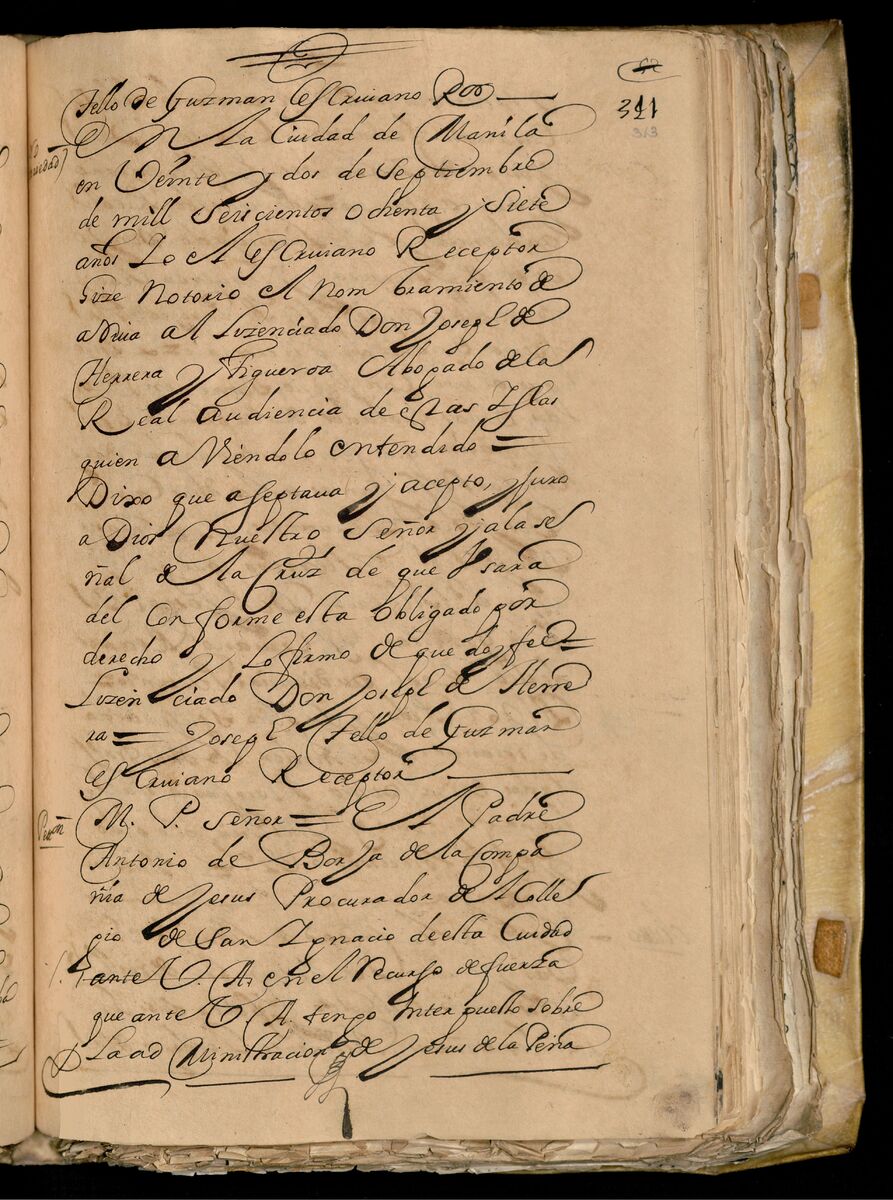 Tello de Guzman escriuano Ror
En la Ciudad de Manila
en veinte y dos de septiembre
de mill seiscientos ochenta y siete
años Yo el escriuano Receptor
hize notorio el nombramiento de
arriua al Lizenciado Don Joseph de
Herrera y Figueroa Abogado de la
Real audiencia de estas Yslas
quien aviendolo entendido =
Dixo que aseptaua y acepto, y juro
a Dios nuestro señor y a la se
ñal de la Cruz de que Vsara
del conforme esta obligado por
derecho y lo firmo de que doy fee =
Lizenciado Don Joseph de Herre
ra = Joseph Tello de Guzman
escriuano Receptor
Petn
M. P. señor = El Padre
Antonio de Borja de la Compa
ñia de Jesus Procurador del Colle
gio de San Ygnacio de esta Ciudad
ante V. A. en el recurso de fuerza
que ante V. A. tengo Interpuesto sobre
La administracion de Jesus de la Peña
311
313